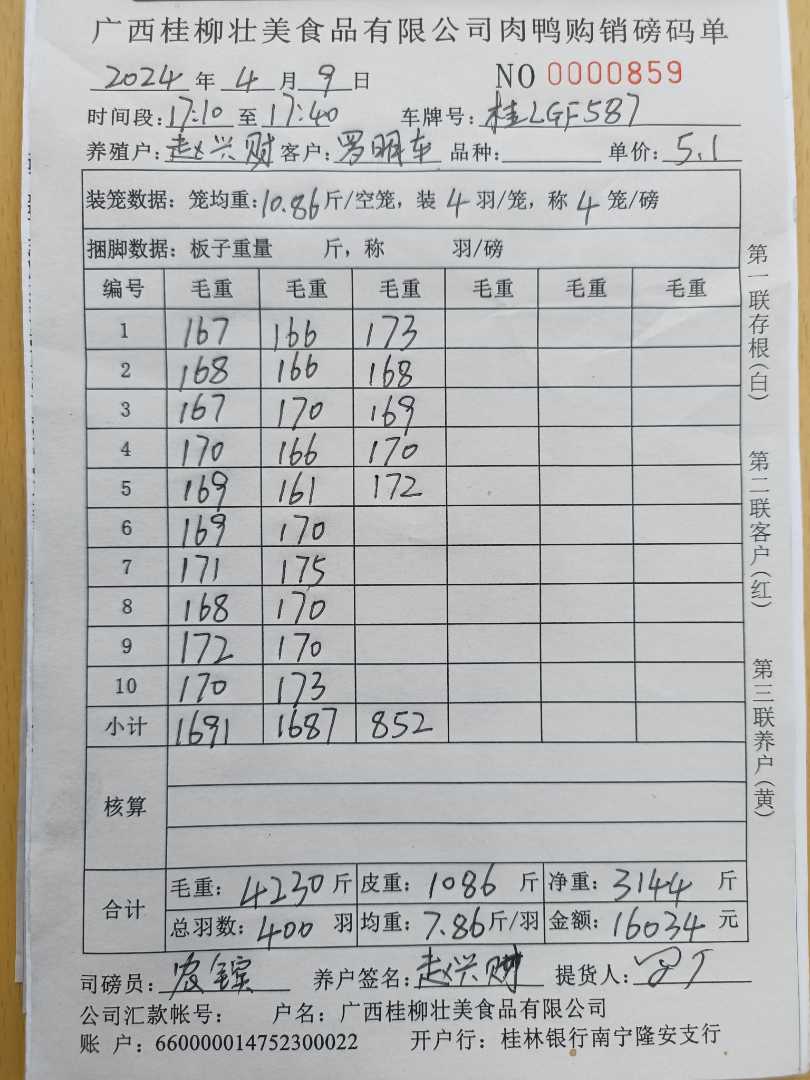 广西桂柳壮美食品有限公司肉鸭购销磅码单
2024 年 4 月 9 日 NO 0000859
时间段:17:10 至 17:40 车牌号:桂LGF587
养殖户:赵兴财 客户:罗明车 品种: 单价:5.1
装笼数据:笼均重:10.86斤/空笼,装 4 羽/笼,称 4 笼/磅
捆脚数据:板子重量 斤,称 羽/磅
编号 毛重 毛重 毛重 毛重 毛重 毛重
1 167 166 173
2 168 166 168
3 167 170 169
4 170 166 170
5 169 161 172
6 169 170
7 171 175
8 168 170
9 172 170
10 170 173
小计 1691 1687 852
核算
合计
毛重:4230斤 皮重:1086 斤 净重:3144 斤
总羽数:400 羽 均重:7.86斤/羽 金额:16034 元
司磅员: 养户签名:赵兴财 提货人:
公司汇款帐号: 户名:广西桂柳壮美食品有限公司
账 户:660000014752300022 开户行:桂林银行南宁隆安支行
第一联存根(白)
第二联客户(红)
第三联养户(黄)